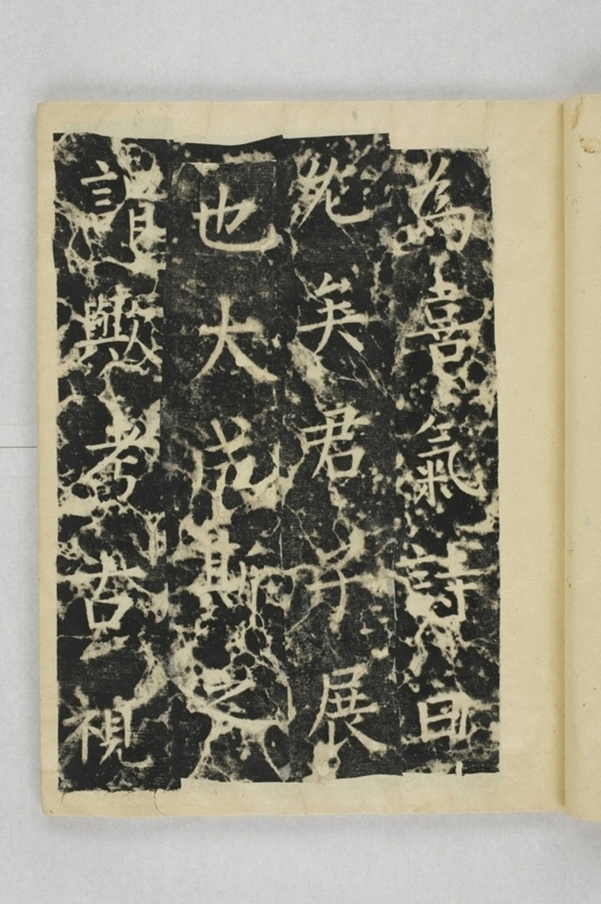 為喜氣詩曰
允矣君子展
也大成斯之
謂歟考古視